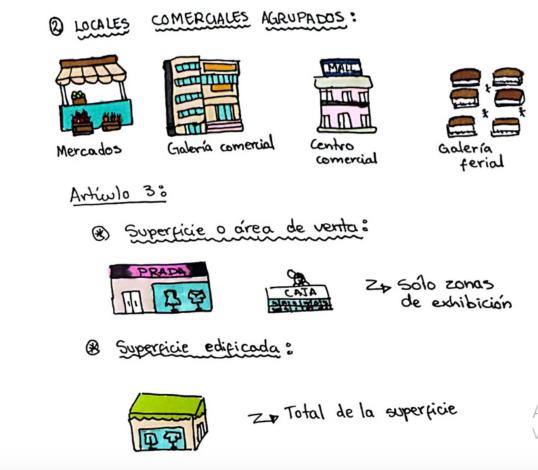 ② LOCALES COMERCIALES AGRUPADOS:
MALL
Mercados
Galería comercial
Centro
comercial
Galería
ferial
Artículo 3:
* Superficie o área de venta:
PRADA
CAJA
Sólo zonas
de exhibición
* Superficie edificada:
Total de la superficie